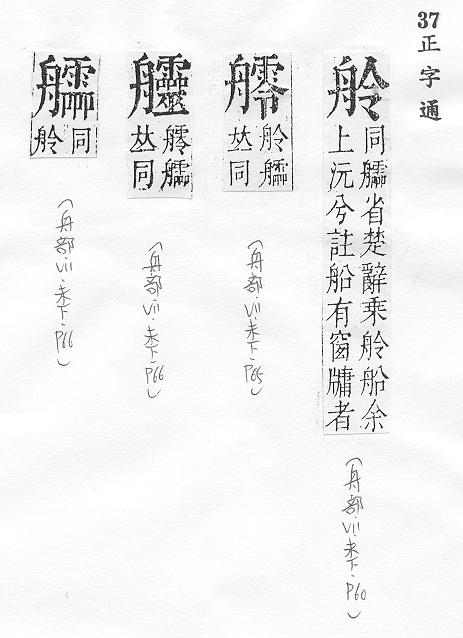 37正字通
舲
同省楚辭乘舲船余
上沅兮註船有窗牖者
（舟部·vii·未下·P60）
舲
𠀤同
（舟部·vii·未下·P65）
𠀤同
（舟部·vii·未下·P66）
同
舲
（舟部·vii·未下·P66）